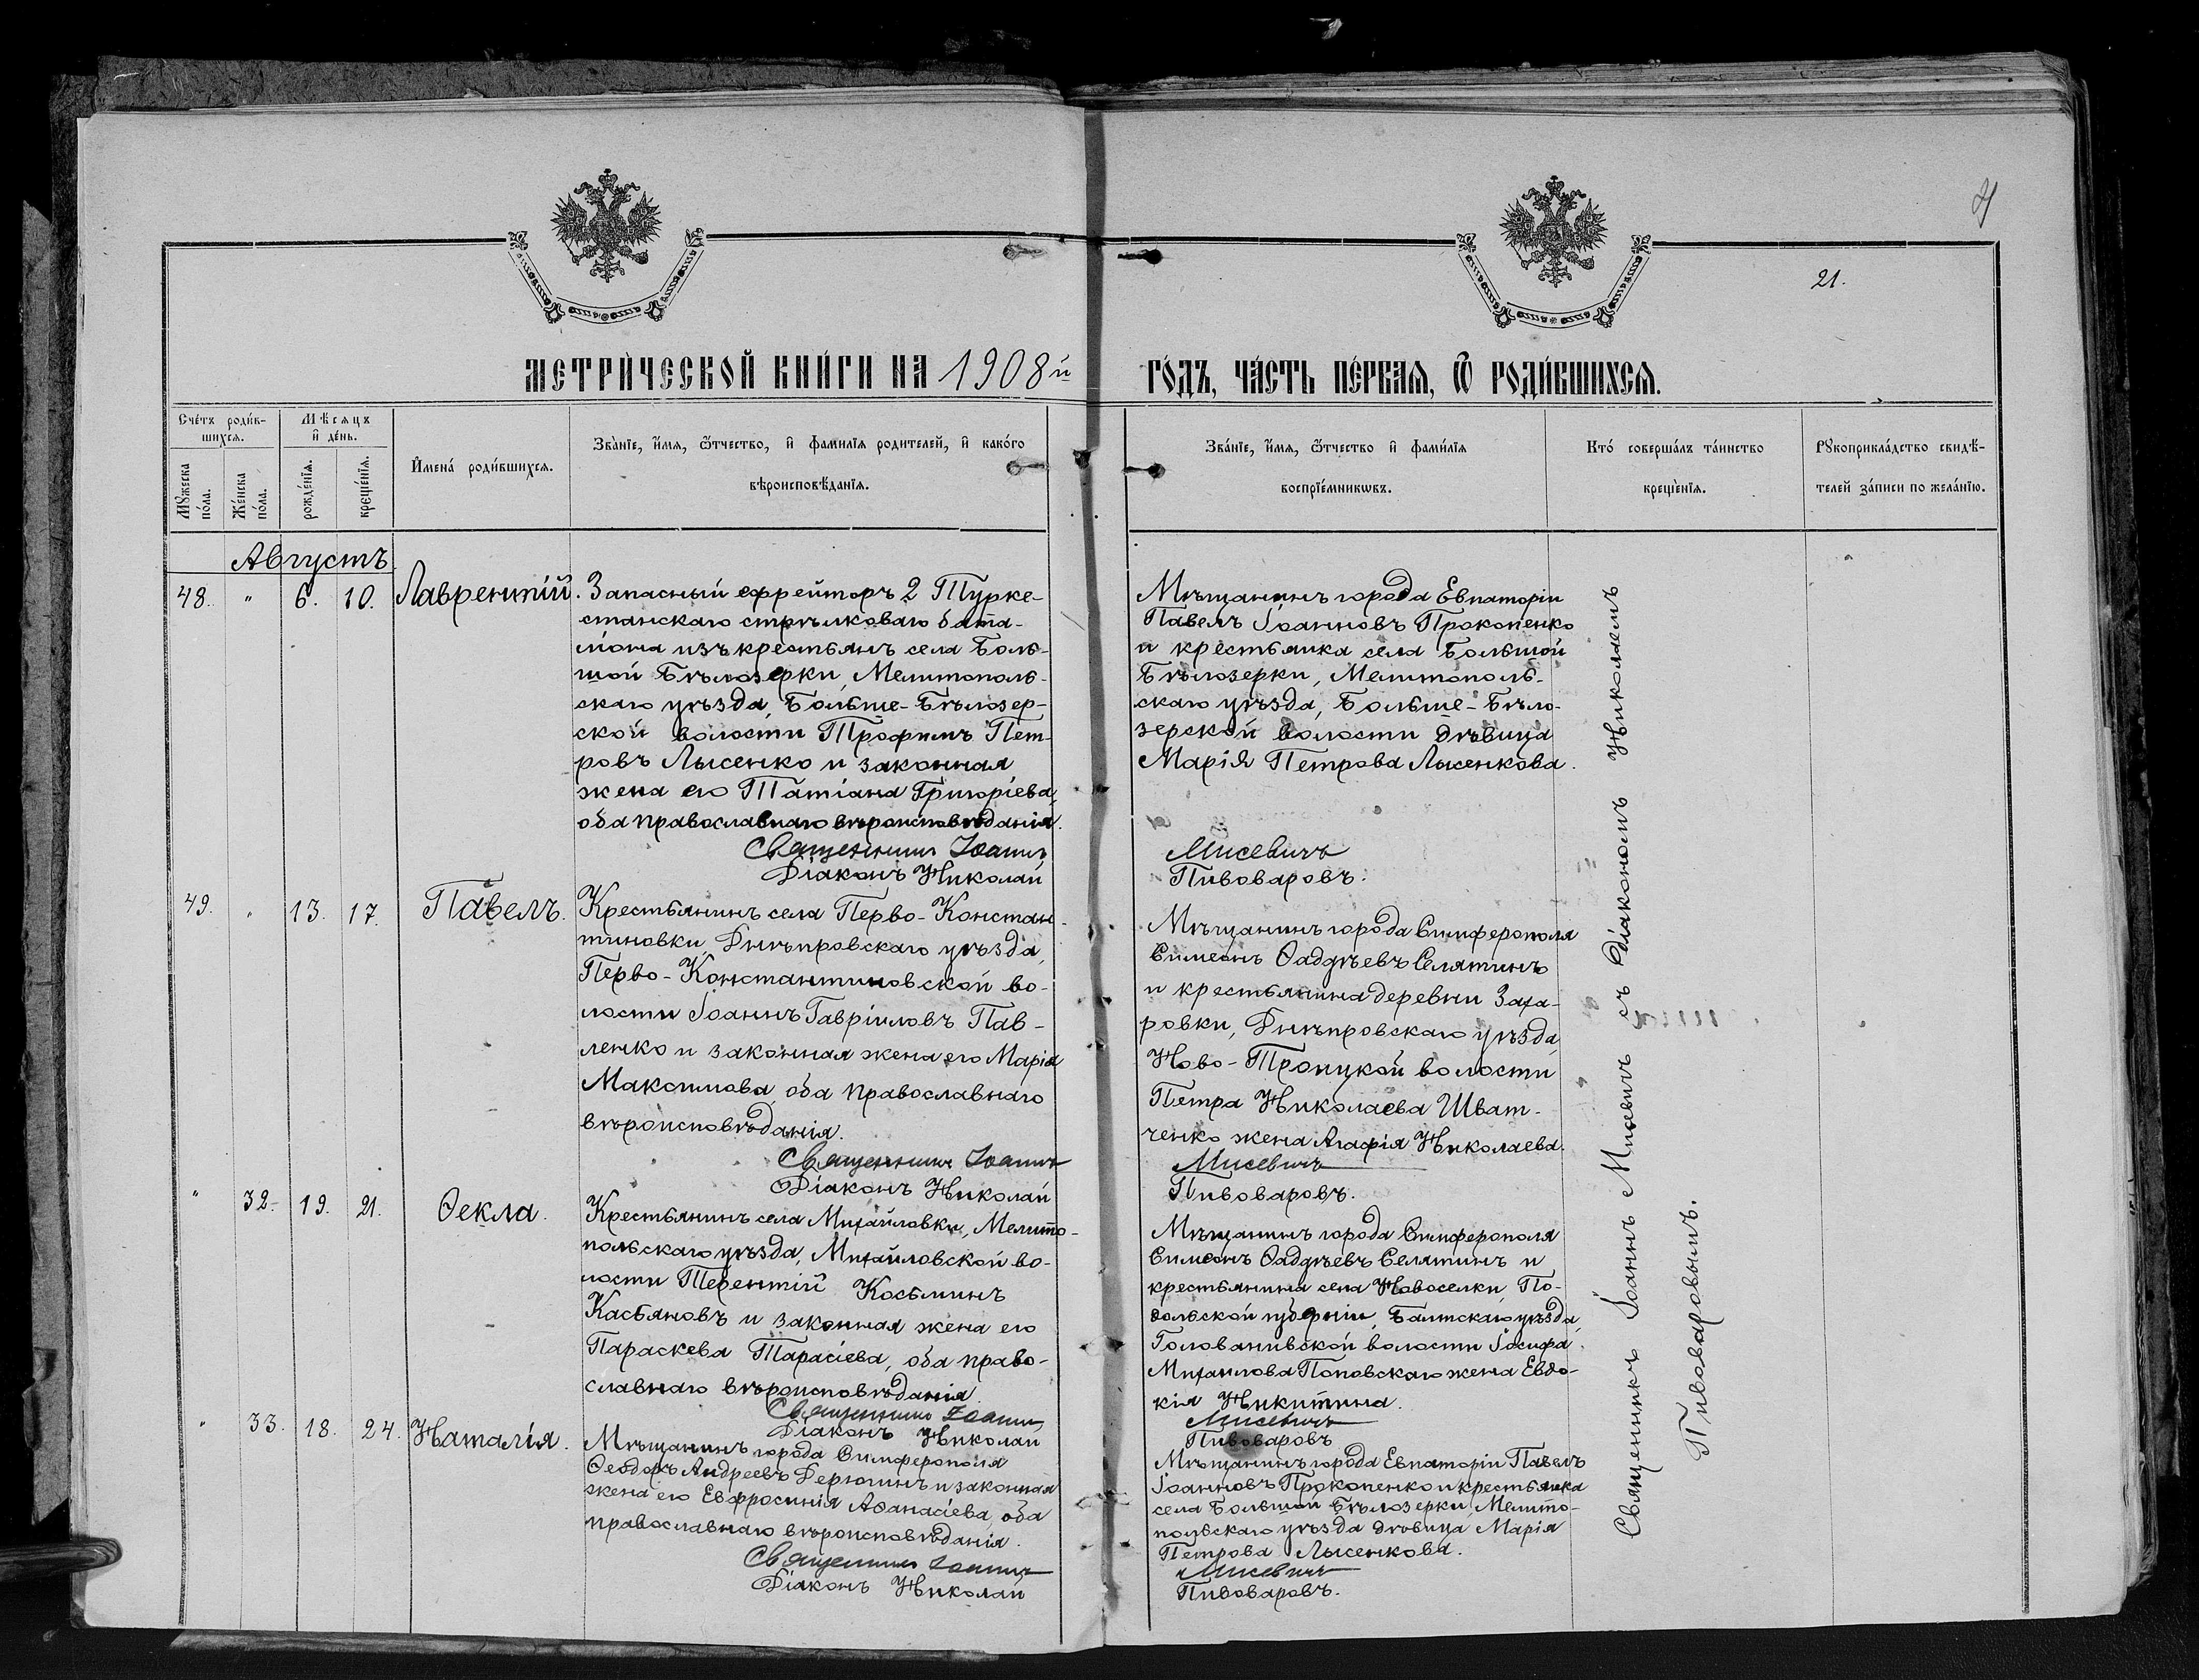 21.
МЕТРИ́ЧЕСКОЙ КНИ́ГИ НА 1908й
ГО́ДЪ, ЧА́СТЬ ПЕ́РВАѦ, Ѡ҆ РОДИ́ВШИХСѦ.
Сче́тъ роди́в-
шихсѧ.
Мꙋжеска по́ла.
Же́нска по́ла.
Мѣ́сяцъ
и҆ де́нь.
рожде́нїѧ.
креще́нїѧ.
И҆мена́ роди́вшихсѧ.
Зва́нїе, и҆́мѧ, ѻ҆́тчество, и҆ фами́лїѧ родителей, и҆ како́го
вѣроисповѣ́данїѧ.
Зва́нїе, и҆́мѧ, ѻ҆́тчество и҆ фами́лїѧ
воспрїе́мникѡвъ.
Кто́ соверша́лъ та́инство
креще́нїѧ.
Рꙋкоприкла́дство свидѣ́-
телей за́писи по жела́нїю.
Августъ
48. " 6. 10. Лаврентій.
Запасный ефрейторъ 2 Турке-
станскаго стрѣлковаго бата-
ліона изъ крестьянъ села Боль-
шой Бѣлозерки, Мелитополь-
скаго уѣзда, Больше-Бѣлозер-
ской волости Трофимъ Пет-
ровъ Лысенко и законная
жена его Татіана Григоріева,
оба православнаго вѣроисповѣданія.
Священникъ Іоаннъ
Діаконъ Николай
Мѣщанинъ города Евпаторіи
Павелъ Іоанновъ Прокопенко
и крестьянка села Большой
Бѣлозерки, Мелитополь-
скаго уѣзда, Больше-Бѣло-
зерской волости дѣвица
Марія Петрова Лысенкова.
Мисевичъ
Пивоваровъ.
49. " 13. 17. Павелъ.
Крестьянинъ села Перво-Констан-
тиновки, Днѣпровскаго уѣзда,
Перво-Константиновской во-
лости Іоаннъ Гавріиловъ Пав-
ленко и законная жена его Марія
Максимова, оба православнаго
вѣроисповѣданія.
Священникъ Іоаннъ
Діаконъ Николай
Мѣщанинъ города Симферополя
Симеонъ Ѳаддѣевъ Селятинъ
и крестьянина деревни Заха-
ровки, Днѣпровскаго уѣзда,
Ново-Троицкой волости
Петра Николаева Шват-
ченко жена Агафія Николаева.
Мисевичъ
Пивоваровъ.
" 32. 19. 21. Ѳекла.
Крестьянинъ села Михайловки, Мелито-
польскаго уѣзда, Михайловской во-
лости Терентій Косьминъ
Касьяновъ и законная жена его
Параскева Тарасіева, оба право-
славнаго вѣроисповѣданія
Священникъ Іоаннъ
Діаконъ Николай
Мѣщанинъ города Симферополя
Симеонъ Ѳаддѣевъ Селятинъ и
крестьянина села Новоселки, По-
дольской губерніи, Балтскаго уѣзда,
Голованивской волости Іосифа
Михаилова Поповскаго жена Евдо-
кія Никитина.
Мисевичъ
Пивоваровъ
" 33. 18. 24. Наталія.
Мѣщанинъ города Симферополя
Ѳеодоръ Андреевъ Дерюгинъ и законная
жена его Евфросинія Аѳанасіева, оба
православнаго вѣроисповѣданія.
Священникъ Іоаннъ
Діаконъ Николай
Мѣщанинъ города Евпаторіи Павелъ
Іоанновъ Прокопенко и крестьянка
села Большой Бѣлозерки, Мелито-
польскаго уѣзда дѣвица Марія
Петрова Лысенкова.
Мисевичъ
Пивоваровъ.
Священникъ Іоаннъ Мисевичъ съ діакономъ Николаемъ
Пивоваровымъ.